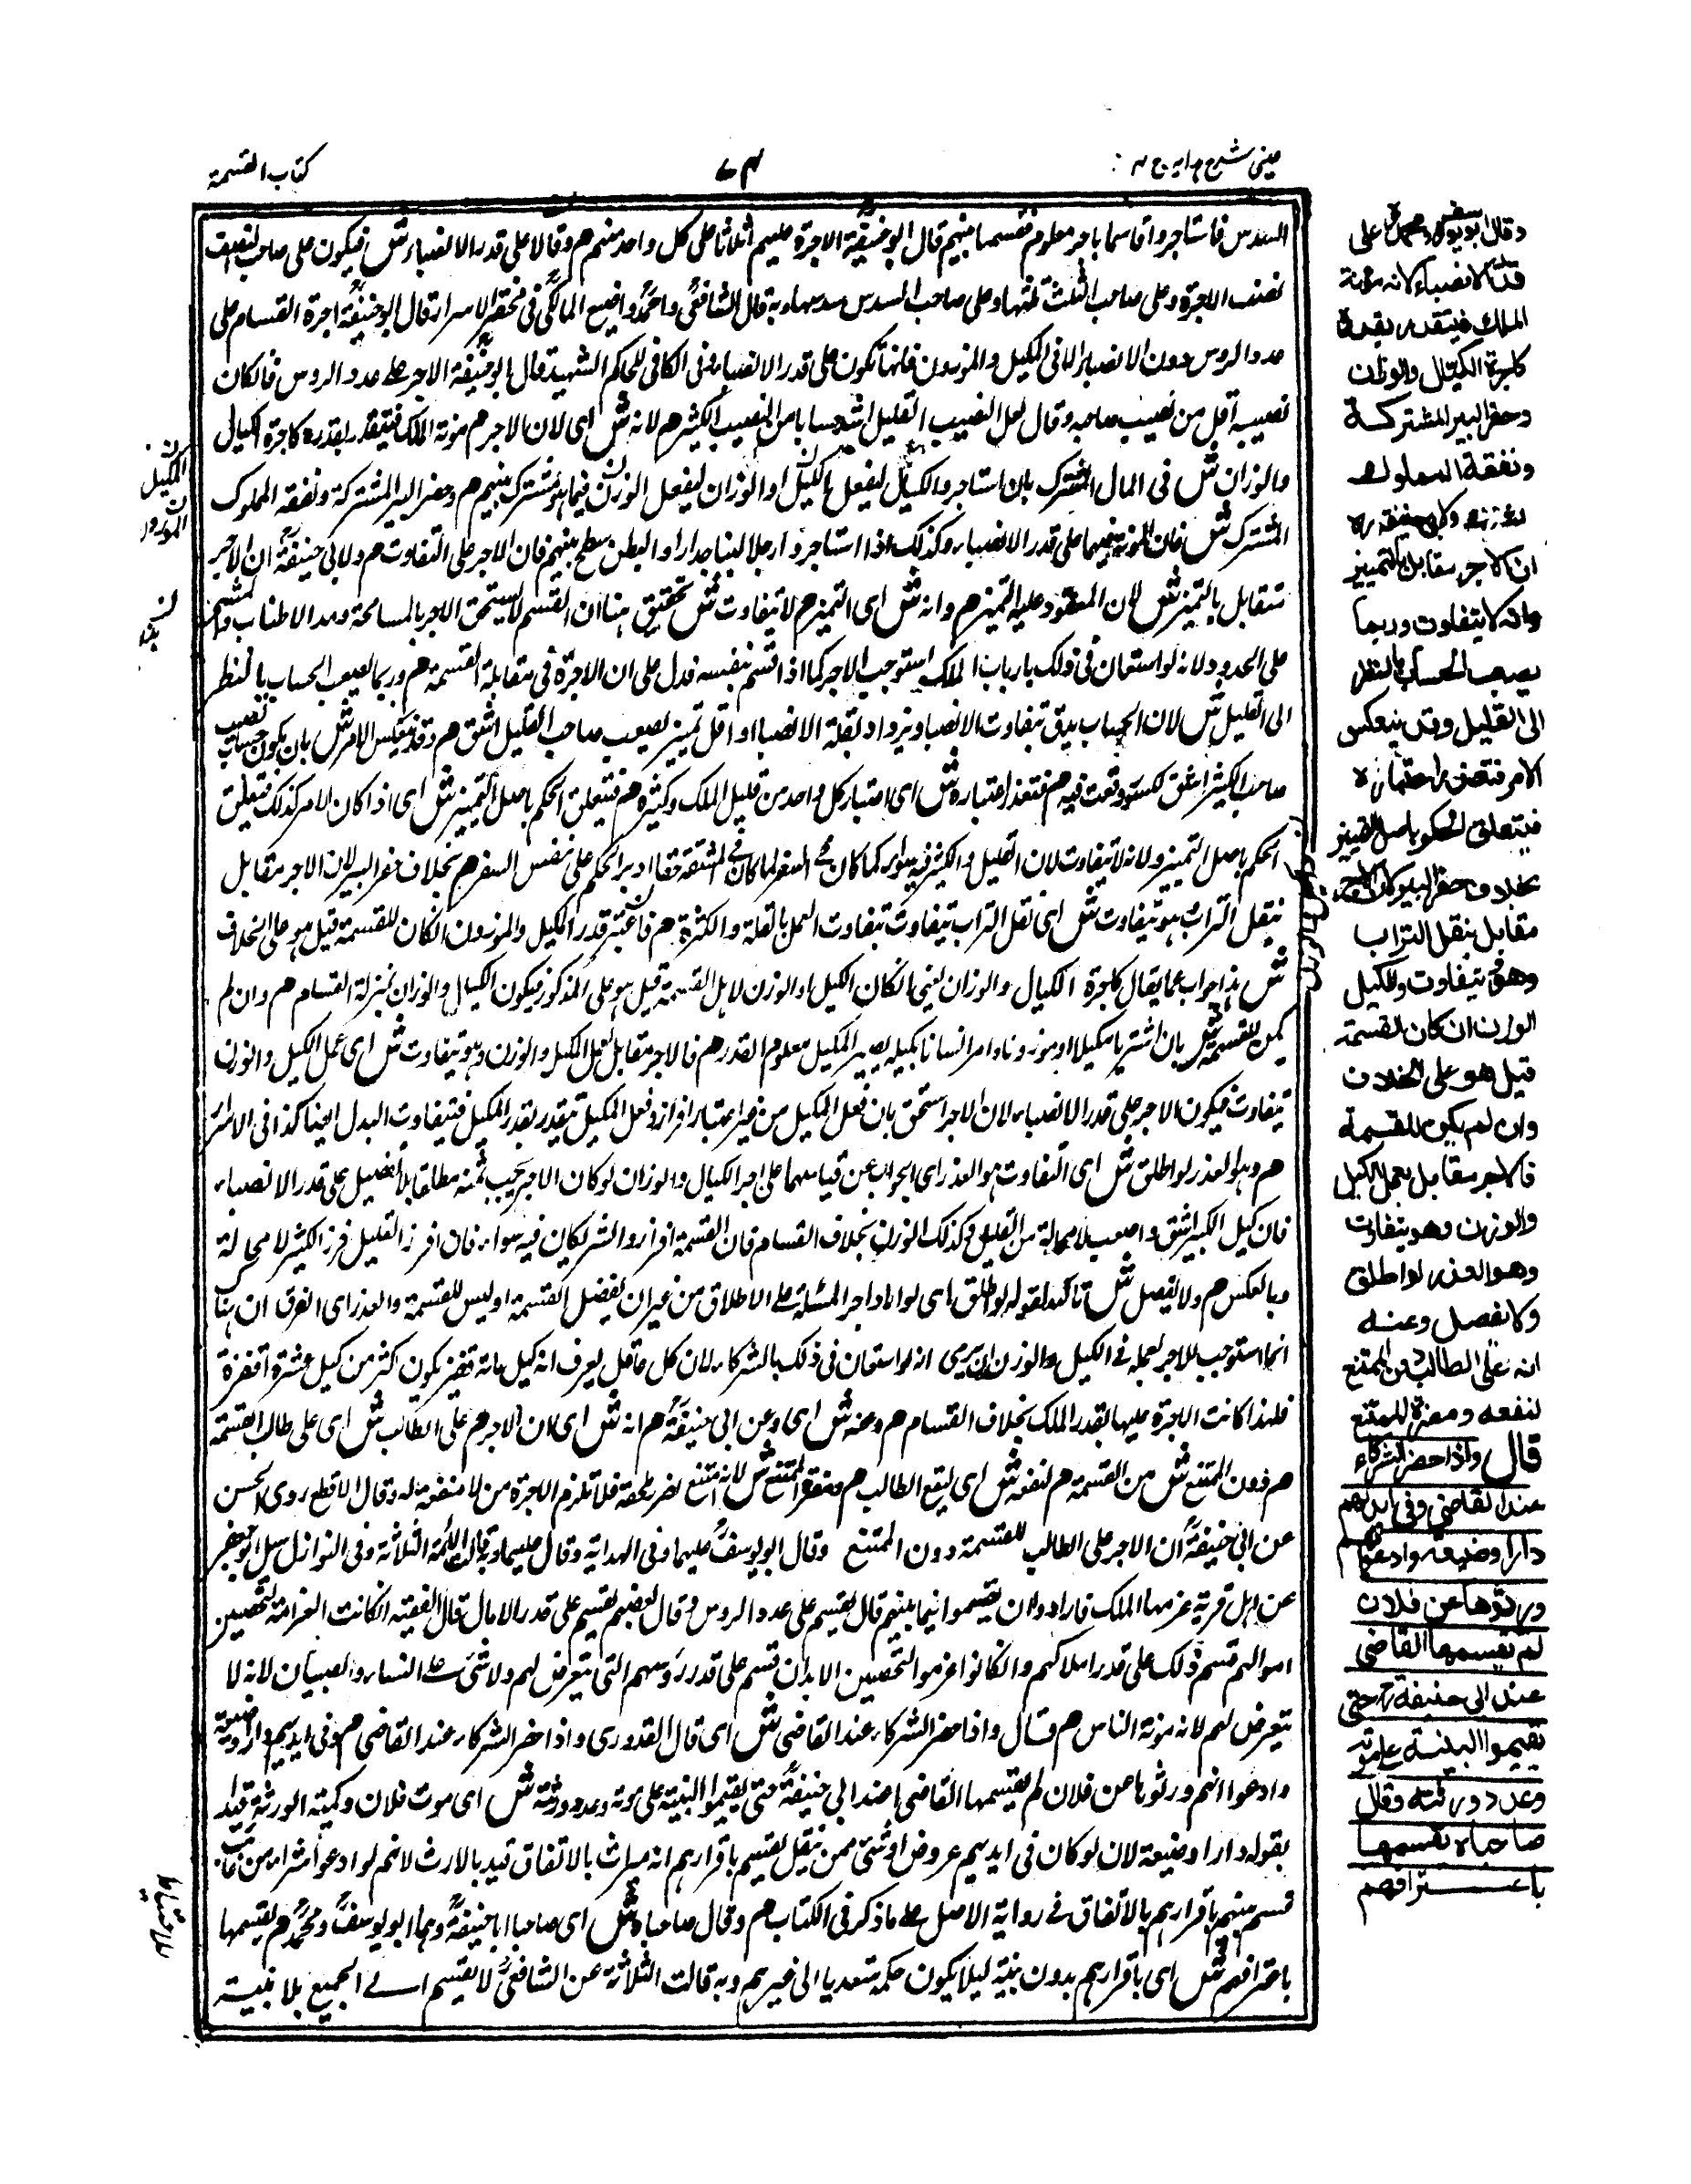 عینی شرح ہدایہ ج ۴
۷۴
کتاب القسمة
السدس فاستاجروا قاسما باجر معلوم فقسمها بینهم قال ابو حنیفة الاجرة علیهم اثلاثا علی کل واحد منهم هم وقالا علی قدر الانصباء ش فیکون علی صاحب النصف
نصف الاجرة وعلی صاحب الثلث ثلثها وعلی صاحب السدس سدسها وبه قال الشافعی واحمد واصبغ المالکی فی مختصر الاسرار قال ابو حنیفة اجرة القسام علی
عدد الروس دون الانصباء الا فی المکیل والموزون فانها تکون علی قدر الانصباء وفی الکافی للحاکم الشهید قال ابو حنیفة الاجر علی عدد الروس فان کان
نصیبه اقل من نصیب صاحبه وقال لعل النصیب القلیل اشد حسابا من النصیب الکثیر هم لانه ش ای لان الاجر هم مونة الملک فیتقدر بقدره کاجرة الکیال
والوزان ش فی المال المشترک بان استاجروا الکیال لیفعل الکیل او الوزان لیفعل الوزن فیما هو مشترک بینهم هم وحفر البیر المشترکة ونفقة المملوک
المشترک ش فان المونة بینهما علی قدر الانصباء وکذلک اذا استاجروا رجلا لبناء جدار او لتطین سطح بینهم فان الاجر علی التفاوت هم ولابی حنیفة ان الاجر
یتقابل بالتمییز ش لان المعقود علیه التمییز هم وانه ش ای التمییز هم لا یتفاوت ش تحقیق هنا ان القسم لا یستحق الاجر بالمساحة ومد الاطناب والمشی
علی الحدود لانه لو استعان فی ذلک بارباب الملک استوجب الاجر کما اذا قسم بنفسه فدل علی ان الاجرة فی مقابلة القسمة هم وربما یصعب الحساب بالنظر
الی القلیل ش لان الحساب یدق بتفاوت الانصباء ویزداد بقلة الانصباء او اقل تمییز نصیب صاحب القلیل اشق هم وقد ینعکس الامر ش بان یکون حساب نصیب
صاحب الکثیر اشق لکسور وقعت فیه هم فتعذر اعتباره ش ای اعتبار کل واحد من قلیل الملک وکثیره هم فیتعلق الحکم باصل التمییز ش ای اذا کان الامر کذلک فیتعلق
الحکم باصل التمییز ولانه لا یتفاوت لان القلیل والکثیر فیه سواء کما کان فی السفر لما کان فی المشقة خفاء ادیر الحکم علی نفس السفر هم بخلاف حفر البیر لان الاجر مقابل
بنقل التراب وهو یتفاوت ش ای نقل التراب یتفاوت بتفاوت العمل بالقلة والکثرة هم فاعتبر قدر الکیل والموزون ان کان للقسمة قیل هو علی الخلاف
ش هذا جواب عما یقال کاجرة الکیال والوزان یعنی ان کان الکیل او الوزن لاجل القسمة قیل هو علی المذکور فیکون الکیال والوزان بمنزلة القسام هم وان لم
یکن للقسمة ش بان اشتریا مکیلا او موزونا وامرا انسانا بکیله یصیر المکیل معلوم القدر هم فالاجر مقابل بعمل الکیل والوزن وهو یتفاوت ش ای عمل الکیل والوزن
یتفاوت فیکون الاجر علی قدر الانصباء لان الاجر استحق بان فعل المکیل من غیر اعتبار افراز وفعل المکیل یتقدر بقدر المکیل فیتفاوت البدل ایضا کذا فی الاسرار
هم وهو العذر لو اطلق ش ای التفاوت هو العذر ای الجواب عن قیاسهما علی اجر الکیال والوزان لو کان الاجر یجب ثمنه مطلقا بلا تفصیل علی قدر الانصباء
فان کیل الکبیر اشق واصعب لا محالة من القلیل وکذلک الوزن بخلاف القسام فان القسمة افراز والشریکان فیه سواء فان افرز القلیل فرز الکثیر لا محالة
وبالعکس هم ولا یفصل ش تاکید لقوله لو اطلق ای لو اراد اجر المسئلة علی الاطلاق من غیر ان یفصل القسمة او لیس للقسمة والعذر ای الفرق ان هنا
انما استوجب الاجر لعمله فی الکیل والوزن الا یری انه لو استعان فی ذلک بالشرکاء لان کل عاقل یعرف انه کیل مائة قفیز یکون اکثر من کیل عشرة اقفزة
فلهذا کانت الاجرة علیها بقدر الملک بخلاف القسام هم وعنه ش ای وعن ابی حنیفة هم انه ش ای ان الاجر هم علی الطالب ش ای علی طالب القسمة
هم دون الممتنع ش من القسمة هم لنفعه ش ای لنفع الطالب هم ومضرة الممتنع ش لانه امتنع لضرر یلحقه فلا تلزم الاجرة من لا منفعة له وقال الاقطع روی الحسن
عن ابی حنیفة ان الاجر علی الطالب للقسمة دون الممتنع وقال ابو یوسف علیهما وفی الهدایه وقال علیهما وبه قالت الائمة الثلاثة وفی النوازل سئل ابو جعفر
عن اهل قریة غرمها الملک فارادوا ان یقسموا فیما بینهم قال یقسم علی عدد الروس وقال بعضهم یقسم علی قدر الاملاک قال الفقیه ان کانت الغرامة لتحصین
اموالهم قسم ذلک علی قدر املاکهم وان کانوا غرموا لتحصین الابدان قسم علی قدر رؤسهم التی یتعرض لهم ولا شئ علی النساء والصبیان لانه لا
یتعرض لهم لانه مونة الناس هم قال واذا حضر الشرکاء عند القاضی ش ای قال القدوری واذا حضر الشرکاء عند القاضی هم وفی ایدیهم دار او ضیعة
وادعوا انهم ورثوها عن فلان لم یقسمها القاضی عند ابی حنیفة حتی یقیموا البینة علی موته وعدد ورثته ش ای موت فلان وکمیة الورثة قید
بقوله دارا وضیعة لان لو کان فی ایدیهم عروض او شئ ممن ینقل یقسم باقرارهم انه میراث بالاتفاق قید بالارث لانهم لو ادعوا شراء من غائب
قسم بینهم باقرارهم بالاتفاق فی روایة الاصل علی ما ذکر فی الکتاب هم وقال صاحباه ش ای صاحبا ابا حنیفة وهما ابو یوسف ومحمد هم یقسمها
باعترافهم ش ای باقرارهم بدون بینة لیلا یکون حکمه متعدیا الی غیرهم وبه قالت الثلاثة عن الشافعی لا یقسم الی الجمیع بلا بینة
وقال ابو یوسف ومحمد علی
قدر الانصباء لانه مؤنة
الملک فیتقدر بقدره
کاجرة الکیال والوزان
وحفر البیر المشترکة
ونفقة المملوک
المشترک ولابی حنیفة رہ
ان الاجر مقابل بالتمییز
وانه لا یتفاوت وربما
یصعب الحساب بالنظر
الی القلیل وقد ینعکس
الامر فتعذر اعتباره
فیتعلق الحکم باصل التمییز
بخلاف حفر البیر لان الاجر
مقابل بنقل التراب
وهو یتفاوت والکیل
الوزن ان کان للقسمة
قیل هو علی الخلاف
وان لم یکن للقسمة
فالاجر مقابل بعمل الکیل
والوزن وهو یتفاوت
وهو العذر لو اطلق
ولا یفصل وعنه
انه علی الطالب دون الممتنع
لنفعه ومضرة الممتنع
قال واذا حضر الشرکاء
عند القاضی وفی ایدیهم
دار او ضیعة وادعوا انهم
ورثوها عن فلان
لم یقسمها القاضی
عند ابی حنیفة رح حتی
یقیموا البینة علی موته
وعدد ورثته وقال
صاحباه یقسمها
باعترافهم